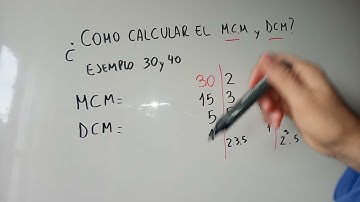 ¿COMO CALCULAR EL M.C.M y D.C.M?
EJEMPLO 30 y 40
MCM=
DCM=
30 2
15 3
5
2·3·5
1 2³·5